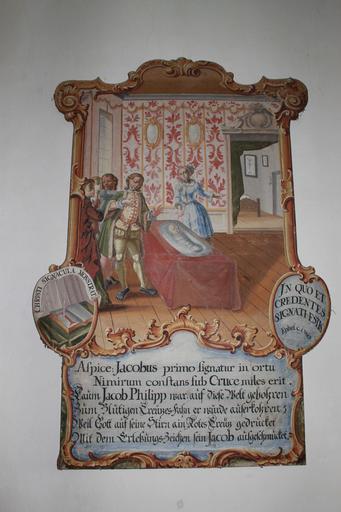 CHRISTI SIGNACULA MONSTRAT
IN QUO ET
CREDENTES
SIGNATI ESTIS
Ephes. c. 1
Aspice: Jacobus primo signatur in ortu
Nimirum constans sub Cruce miles erit.
Kaum Jacob Philipp war auf diese Welt gebohren
Zum Blutigen Creutzes-fahn er wurde auserkohren;
Weil Gott auf seine Stirn ain Rotes Creutz gedrucket
Mit dem Erlösungs-Zeichen sein Jacob ausgeschmucket.